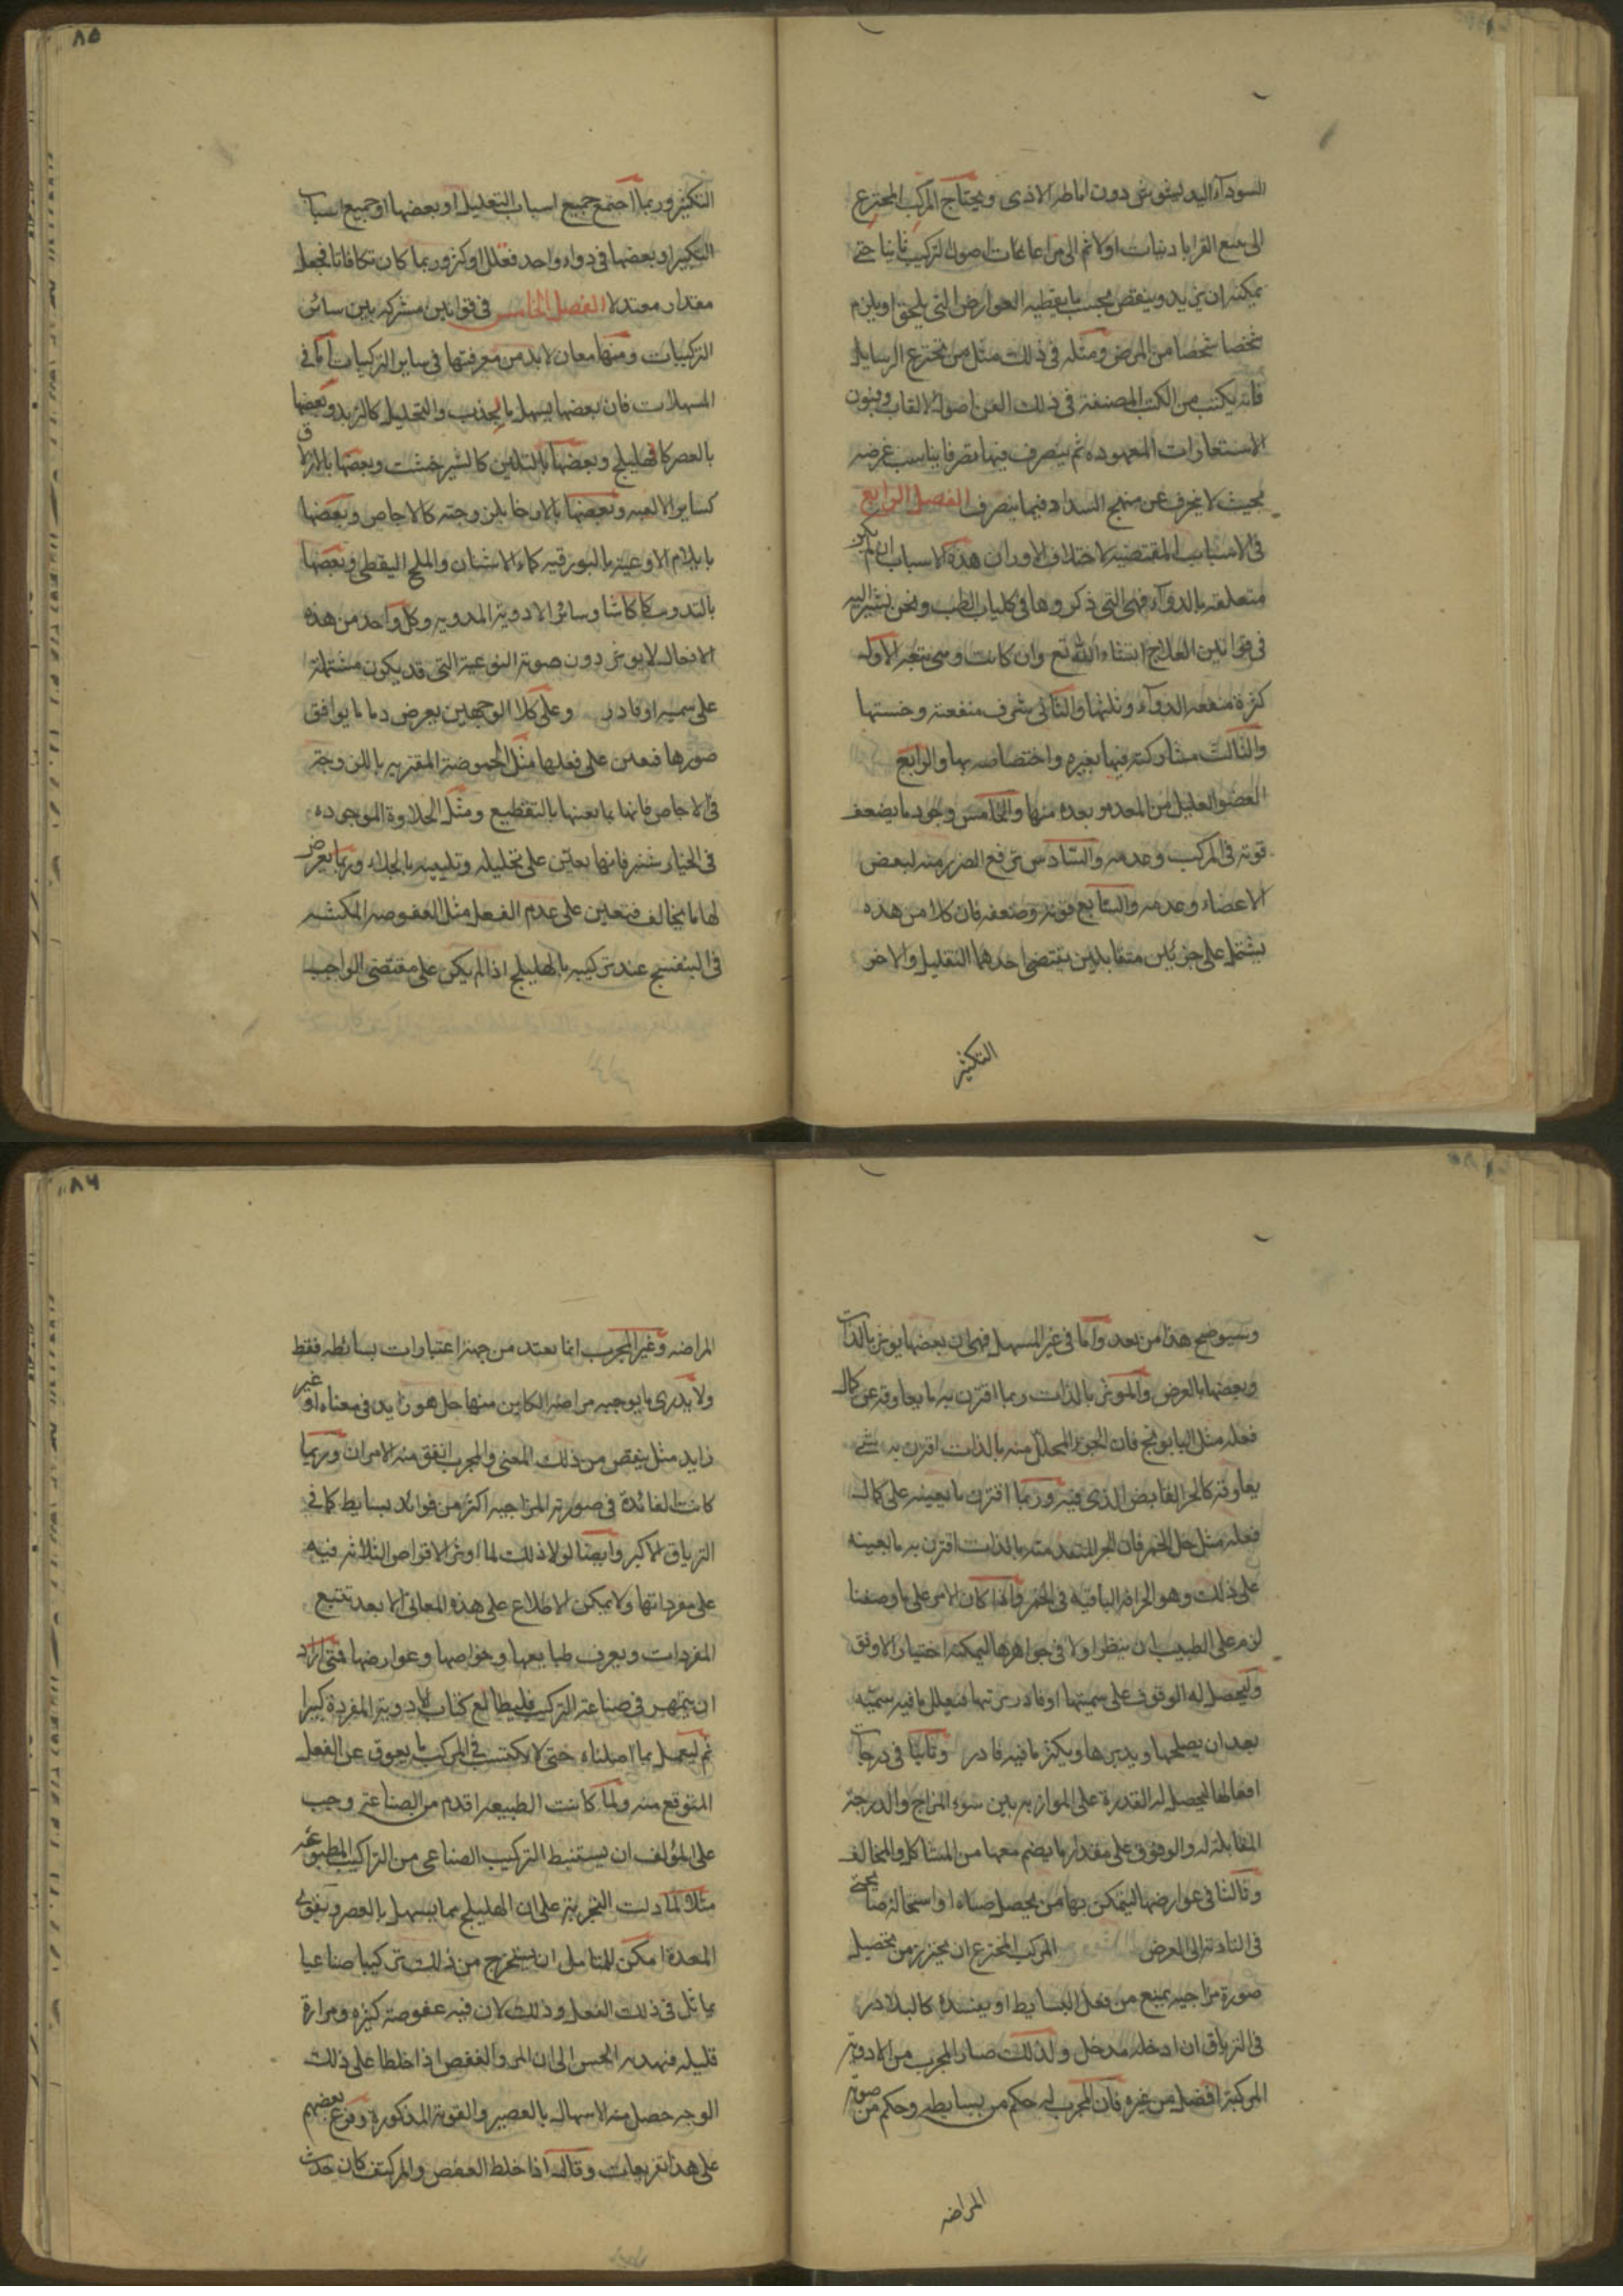 السوداء اليه ليثور دون اماطه الاذى ويحتاج المركب المخترع
الى تتبع القراباذنيات اولا ثم الى مراعات اصول التركيب ثانيا حتى
يمكنه ان يزيد وينقص بحسب ما يعطيه العوارض التى يلحق او يلزم
شخصا شخصا من المرض ومثله فى ذلك مثل من يخترع الرسايل
فانه يكتب من الكتب المصنفة فى ذلك الفن اصول الالقاب وفنون
الاستعارات المعهوده ثم يتصرف فيها تصرفا يناسب غرضه
بحيث لا يخرف عن منهج السداد فيما يتصرف الفصل الرابع
فى الاسباب المقتضيه لاختلاف الاوزان هذه الاسباب ان لم يكن
متعلقه بالدواء فهى التى ذكروها فى كليات الطب ونحن نشير اليه
فى قوانين العلاج انشاء الله تع وان كانت وهى سبعة الاول
كثرة منفعه الدواء وقلتها والثانى شرف منفعته وخستها
والثالث مشاركته فيها بغيره واختصاصه بها والرابع
العضو العليل من المعده وبعده منها والخامس وجود ما يضعف
قوته فى المركب وعدمه والسادس ترفع الضرر منه لبعض
الاعضاء وعدمه والسابع قوته وضعفه فان كلا من هذه
يشتمل على جزئين متقابلين يقتضى احدهما التقليل والاخر
التكثير
٨٥
التكثير وربما اجتمع جميع اسباب التعليل او بعضها او جميع اسباب
التكثير او بعضها فى دواء واحد فقلل او كثر وربما كان تكافاتا فجعل
مقدار معتدلا الفصل الخامس فى قوانين مشتركه بين سائر
التركيبات ومنها معان لابد من معرفتها فى ساير التركيبات اما فى
المسهلات فان بعضها يسهل بالجذب والتحليل كالتربد وبعضها
بالعصر كالهليلج وبعضها بالتليين كالشيرخشت وبعضها بالازلاق
كساير الالعبه وبعضها بالارخا بلزوجته كالاجاص وبعضها
بايلام الاوعية بالبورقيه كماء الاشنان والملح النفطى وبعضها
بالتذويب كالكاشا وسائر الادوية المذوبه وكل واحد من هذه
الافعال لا يوثر دون صورته النوعية التى قد يكون مشتملة
على سميه او فادزر وعلى كلا الوجهين يعرض دما ما يوافق
صورها فتعين على فعلها مثل الحموضة المقترنه باللزوجة
فى الاجاص فانها تعينها بالتقطيع ومثل الحلاوة الموجوده
فى الخيارشنبر فانها يعين على تحليله وتليينه بالجلاء وربما يعرض
لها ما يخالف فتعين على عدم الفعل مثل العفوصه المكثفه
فى البنفسج عند تركيبه بالهليلج اذا لم يكن على مقتضى الواجب
وسيوضح هذا من بعد واما فى غير المسهل فهى ان بعضها يوثر بالذات
وبعضها بالعرض والموثر بالذات ربما اقترن به ما يعاوقه عن كمال
فعله مثل البابونج فان الجوهر المحلل منه بالذات اقترن به شئ
يعاوقه كالجزء القابض الذى فيه وربما اقترن ما يعينه على كمال
فعله مثل خل الخمر فان الجزء المتقدمته بالذات اقترن به ما يعينه
على ذلك وهو الحرافة الباقيه فى الخمر واذا كان الامر على ما وصفنا
لزم على الطبيب ان ينظر اولا فى جواهرها ليمكنه اختيار الاوفق
وليحصل له الوقوف على سميتها او فادزريتها فيعلل ما فيه سمية
بعد ان يصلحها ويدبرها ويكثر ما فيه فادزر وثانيا فى درجات
افعالها ليحصل له القدرة على الموازنه بين سوء المزاج والدرجة
المقابلة له والوقوف على مقدار ما يضم معها من المشاكل والمخالف
وثالثا فى عوارضها ليتمكن بها من يحصل صناه او استحالة صنا
فى التادية الى العرض المركب المخترع ان يحترز من تحصيل
صورة مزاجيه يمنع من فعل البسايط او يفسده كالبلادر
فى الترياق ان ادخله مدخل ولذلك صار المجرب من الادوية
المركبة افضل من غيره فان المجرب له حكم من بسايطه وحكم من صورته
المراضه
٨٦
المراضه وغير المجرب انما يعتد من جهة اعتبارات بسائطه فقط
ولا يدرى ما يوجبه مراضه الكاين منها هل هو زايد فى معناه او غير
زايد مثل ينقص من ذلك المعنى والمجرب اتفق منه الامران وربما
كانت الفائدة فى صورته المزاجيه اكثر من فوائد بسايط كما فى
الترياق الاكبر وايضا لولا ذلك لما اوثر الاقراص الثلاثه فيه
على مفرداتها ولا يمكن الاطلاع على هذه المعانى الا بعد تتبع
المفردات ويعرف طبايعها وخواصها وعوارضها فمتى اراد
ان يتمهر فى صناعة التركيب فليطالع كتاب الادوية المفردة كبيرا
ثم ليعمل بما اصلناه حتى لا يكتسب فى المركب ما يعوق عن الفعل
المتوقع منه ولما كانت الطبيعه اقدم من الصناعة وجب
على المؤلف ان يستنبط التركيب الصناعى من التراكيب المطبوعه
مثلا لما دلت التجربة على ان الهليلج مما يسهل بالعصر ويقوى
المعدة امكن للمتامل ان يستخرج من ذلك تركيبا صناعيا
يماثل فى ذلك الفعل وذلك لان فيه عفوصة كثيره ومرارة
قليله فيهديه الحس الى ان المر والعفص اذا خلطا على ذلك
الوجه حصل منه الاسهال بالعصير والقوة المذكورة وفرع بعضهم
على هذا تفريعات وقال اذا خلط العفص والمر كيف كان حدث